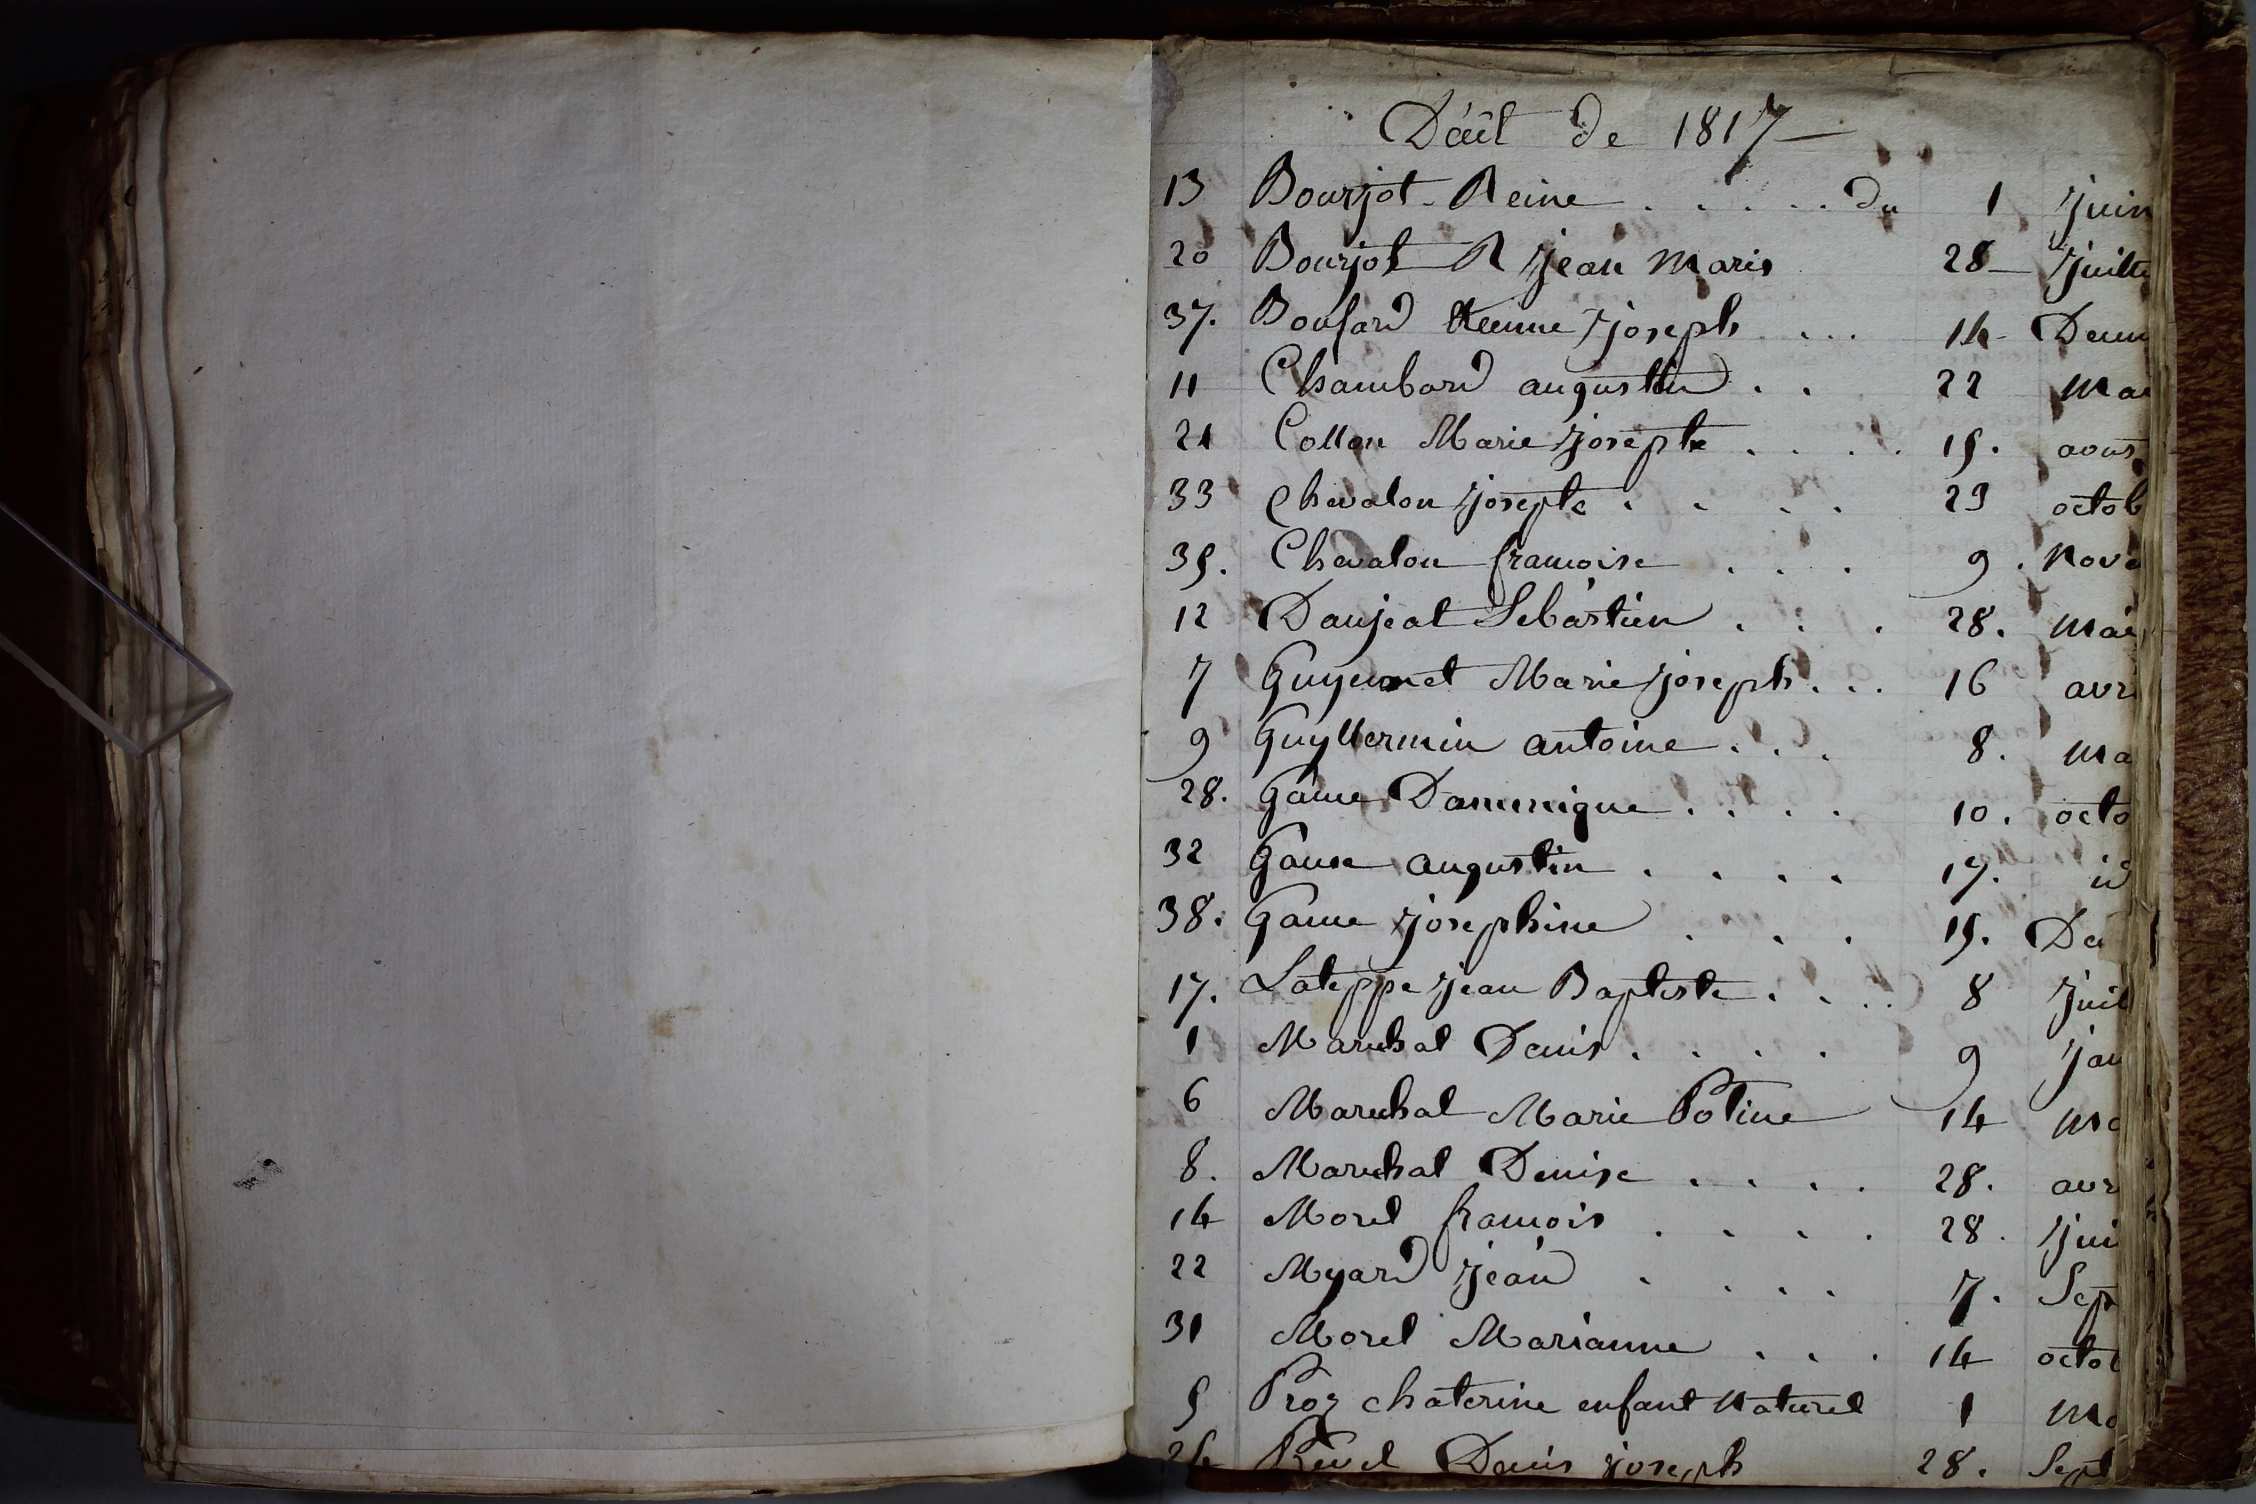 Décèt de 1817
13 Bourjot Reine ..... du 1 juin
20 Bourjot R jean Marie 28 juille
37. Boufard Etienne joseph ... 14 Decem
11 Chambard augustin .. 22 mai
21 Collon Marie josepte .... 15. aous
33 Chevalon josepte .... 23 octob
35. Chevalon francoise ... 9. Nove
12 Daujeat Sebastien ... 28. mai
7 Guyennet Marie joseph ... 16 avri
9 Guyllermin antoine ... 8. ma
28. Game Dominique .... 10. octo
32 Game augustin .... 17. id
38. Game josephine ... 15. De
17. Lateppe jean Baptiste .... 8 juil
1 Marechal Denis .... 9 jan
6 Marechal Marie Potine 14 ma
8. Marechal Denise .... 28. avr
14 Morel francois .... 28. jui
22 Myard jean .... 7. Sep
31 Morel Marianne ... 14 octob
5 Proz chaterine enfant Naturel 1 ma
Revel Denis joseph 28. Sept